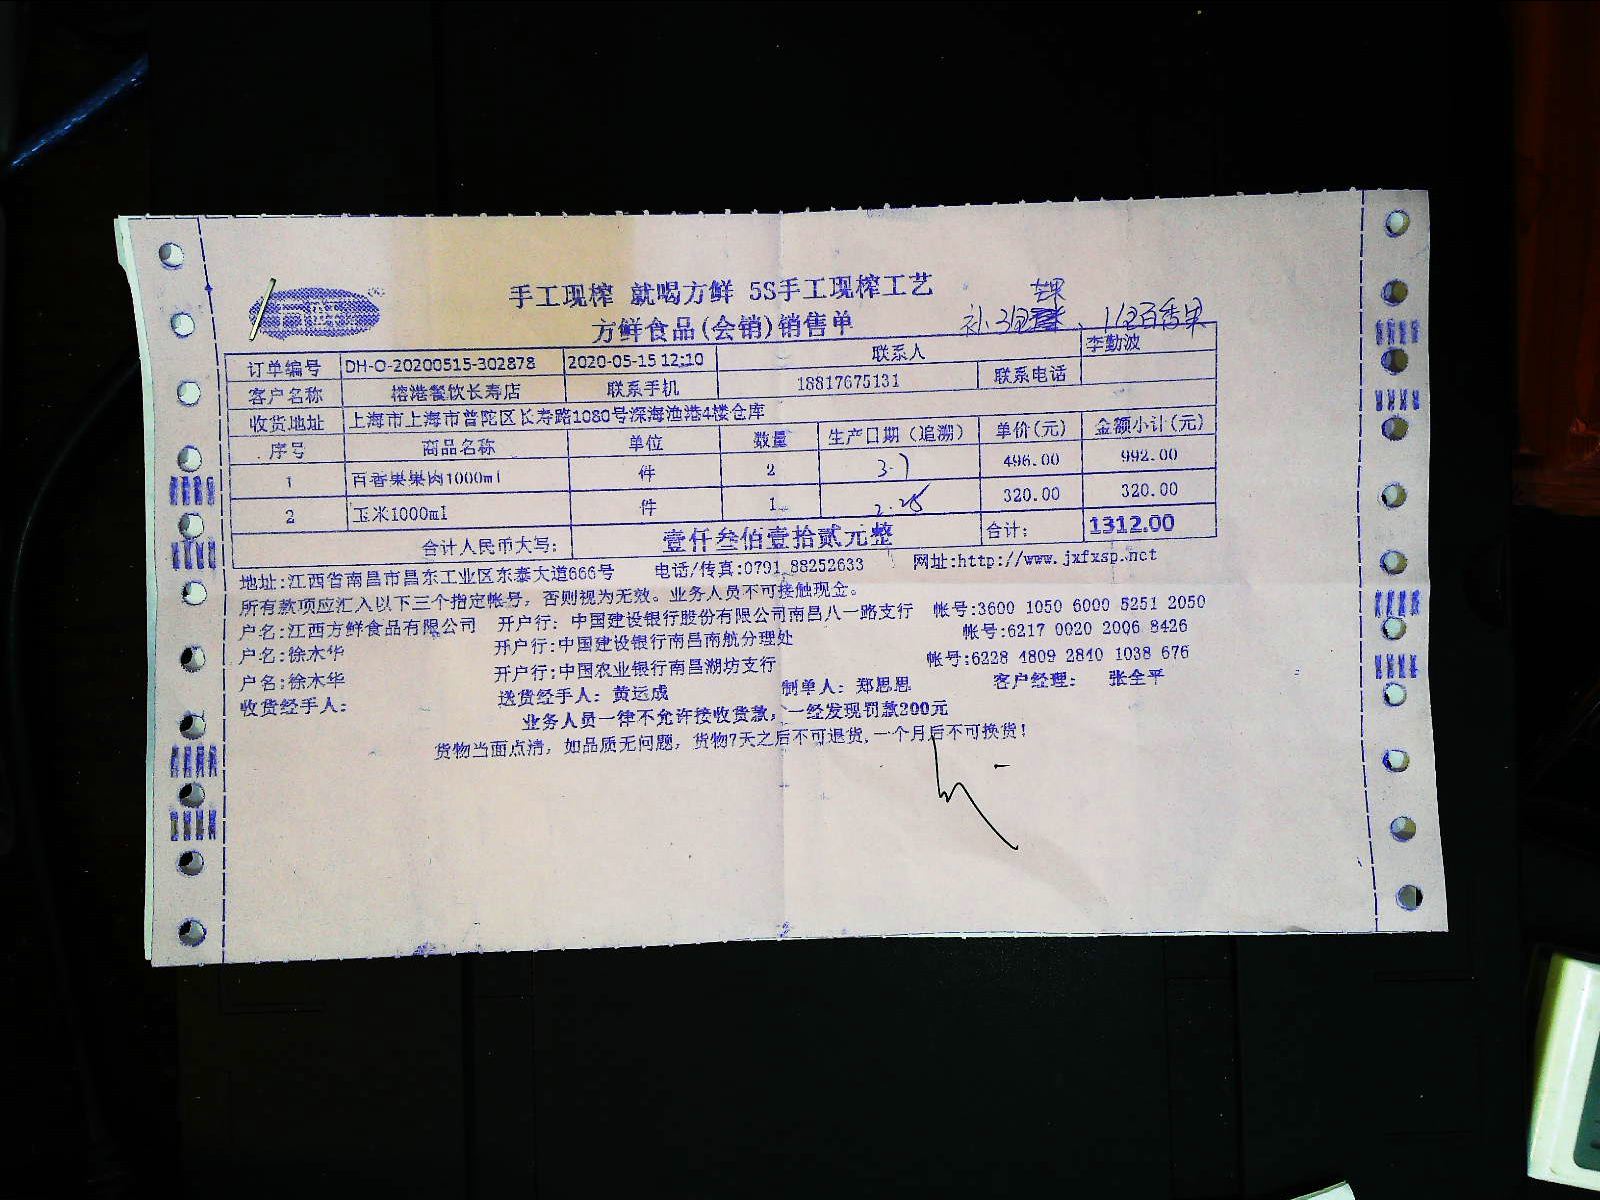 手工现榨 就喝方鲜 5S手工现榨工艺
方鲜食品(会销)销售单
补3包 、1包百香果
订单编号 DH-O-20200515-302878 2020-05-15 12:10 联系人 李勤波
客户名称 榕港餐饮长寿店 联系手机 18817675131 联系电话
收货地址 上海市上海市普陀区长寿路1080号深海渔港4楼仓库
序号 商品名称 单位 数量 生产日期（追溯） 单价(元) 金额小计(元)
1 百香果果肉1000ml 件 2 3.7 496.00 992.00
2 玉米1000ml 件 1 2.25 320.00 320.00
合计人民币大写: 壹仟叁佰壹拾贰元整 合计: 1312.00
地址:江西省南昌市昌东工业区东泰大道666号 电话/传真:0791 88252633 网址:http://www.jxfxsp.net
所有款项应汇入以下三个指定帐号，否则视为无效。业务人员不可接触现金。
户名:江西方鲜食品有限公司 开户行: 中国建设银行股份有限公司南昌八一路支行 帐号:3600 1050 6000 5251 2050
户名:徐木华 开户行:中国建设银行南昌南航分理处 帐号:6217 0020 2006 8426
户名:徐木华 开户行:中国农业银行南昌湖坊支行 帐号:6228 4809 2840 1038 676
收货经手人: 送货经手人: 黄远成 制单人: 郑思思 客户经理: 张全平
业务人员一律不允许接收货款，一经发现罚款200元
货物当面点清，如品质无问题，货物7天之后不可退货,一个月后不可换货!